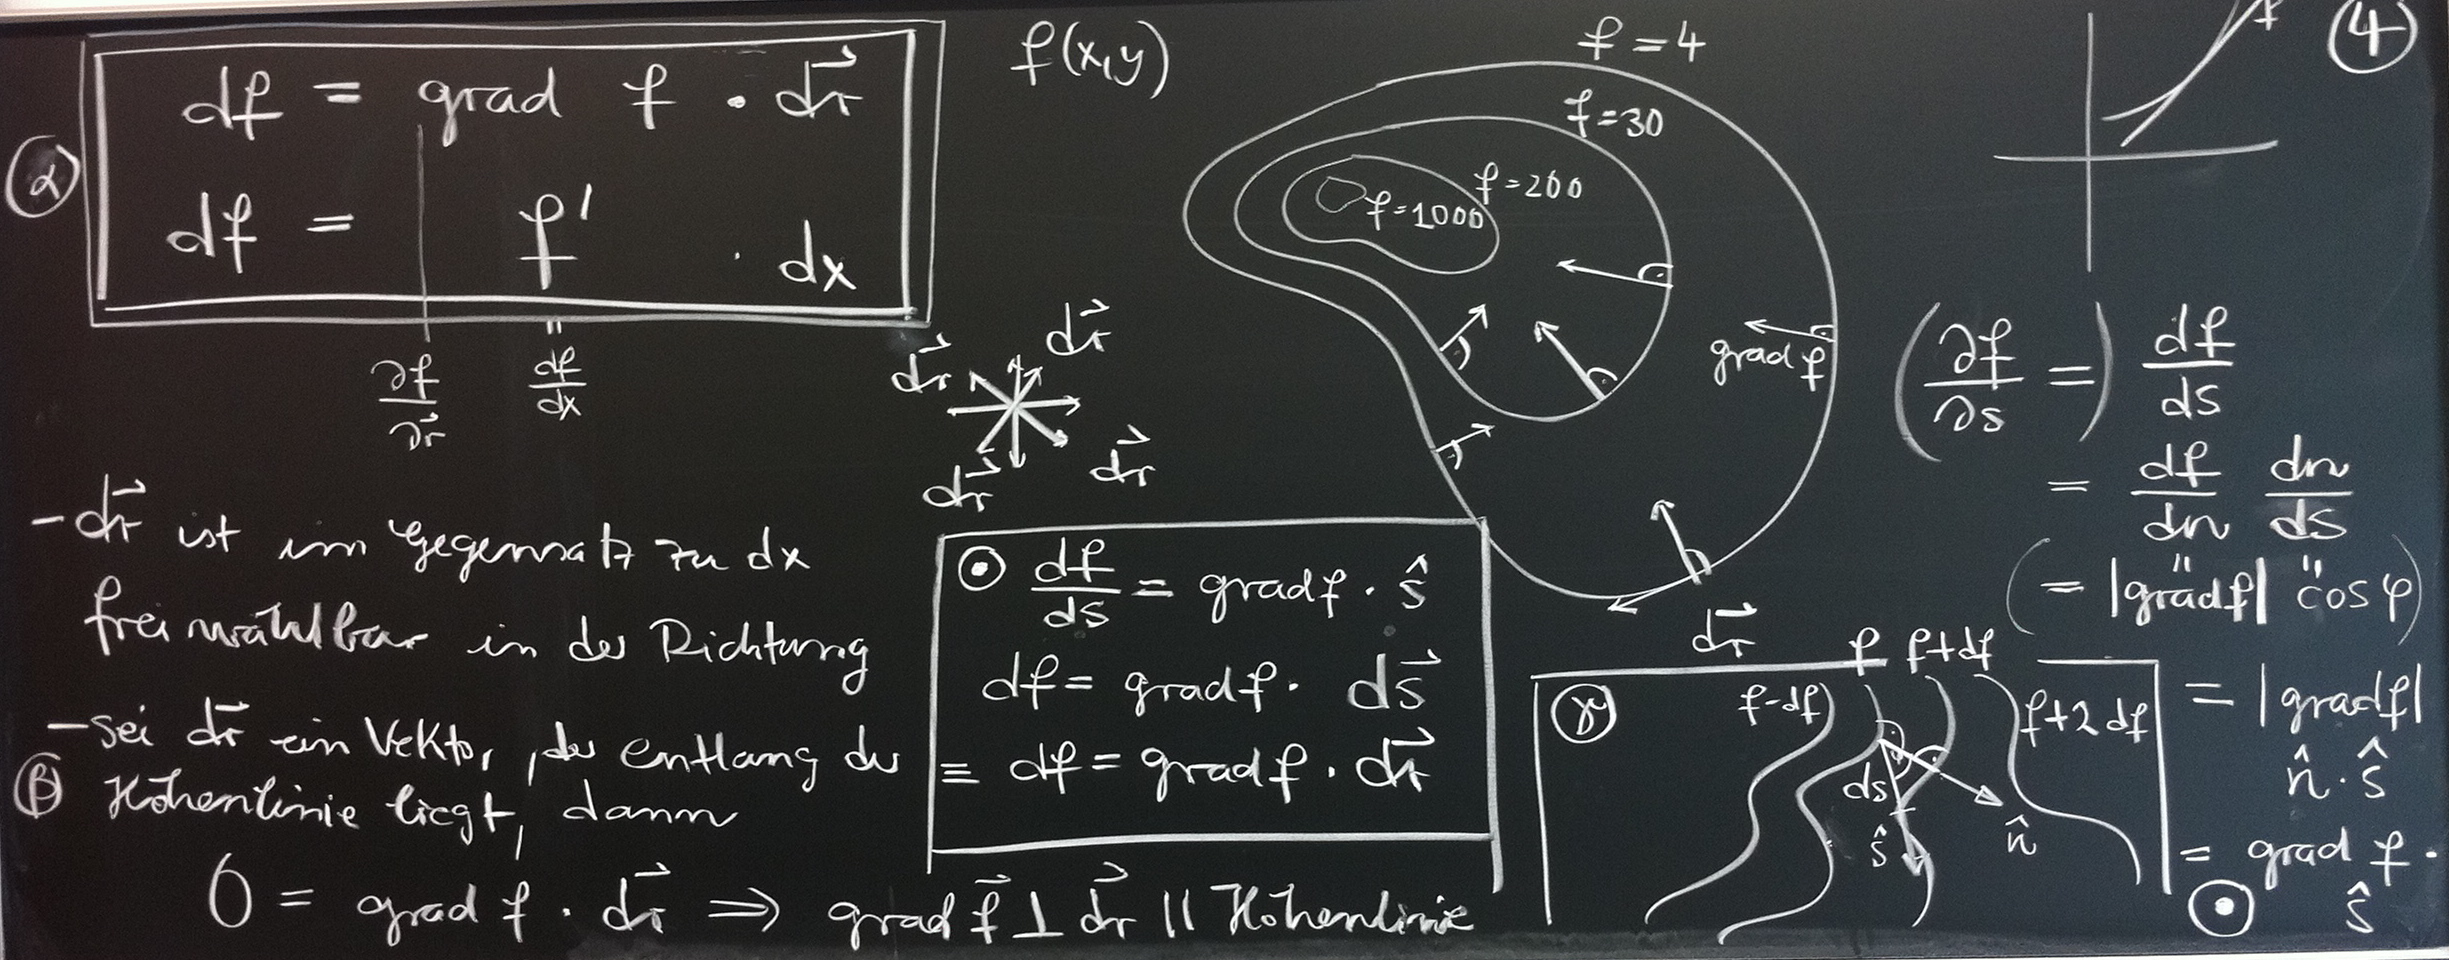 ④
α
df = grad f · d\vec{r}
df = f' · dx
∂f/∂\vec{r}
" df/dx
f(x,y)
f = 4
f=30
f=200
f=1000
grad f
d\vec{r}
d\vec{r}
d\vec{r}
d\vec{r}
d\vec{r}
- d\vec{r} ist im Gegensatz zu dx
frei wählbar in der Richtung
- sei d\vec{r} ein Vektor, der entlang der
β Höhenlinie liegt, dann
0 = grad f · d\vec{r} ⇒ grad \vec{f} ⊥ d\vec{r} || Höhenlinie
⊙ df/ds = grad f · ŝ
df = grad f · d\vec{s}
≡ df = grad f · d\vec{r}
γ
f-df
f
f+df
f+2df
ds
ŝ
n̂
(∂f/∂s =) df/ds
= df/dn dn/ds
" "
(= |grad f| cos φ)
= |grad f|
n̂ · ŝ
= grad f ·
⊙ ŝ